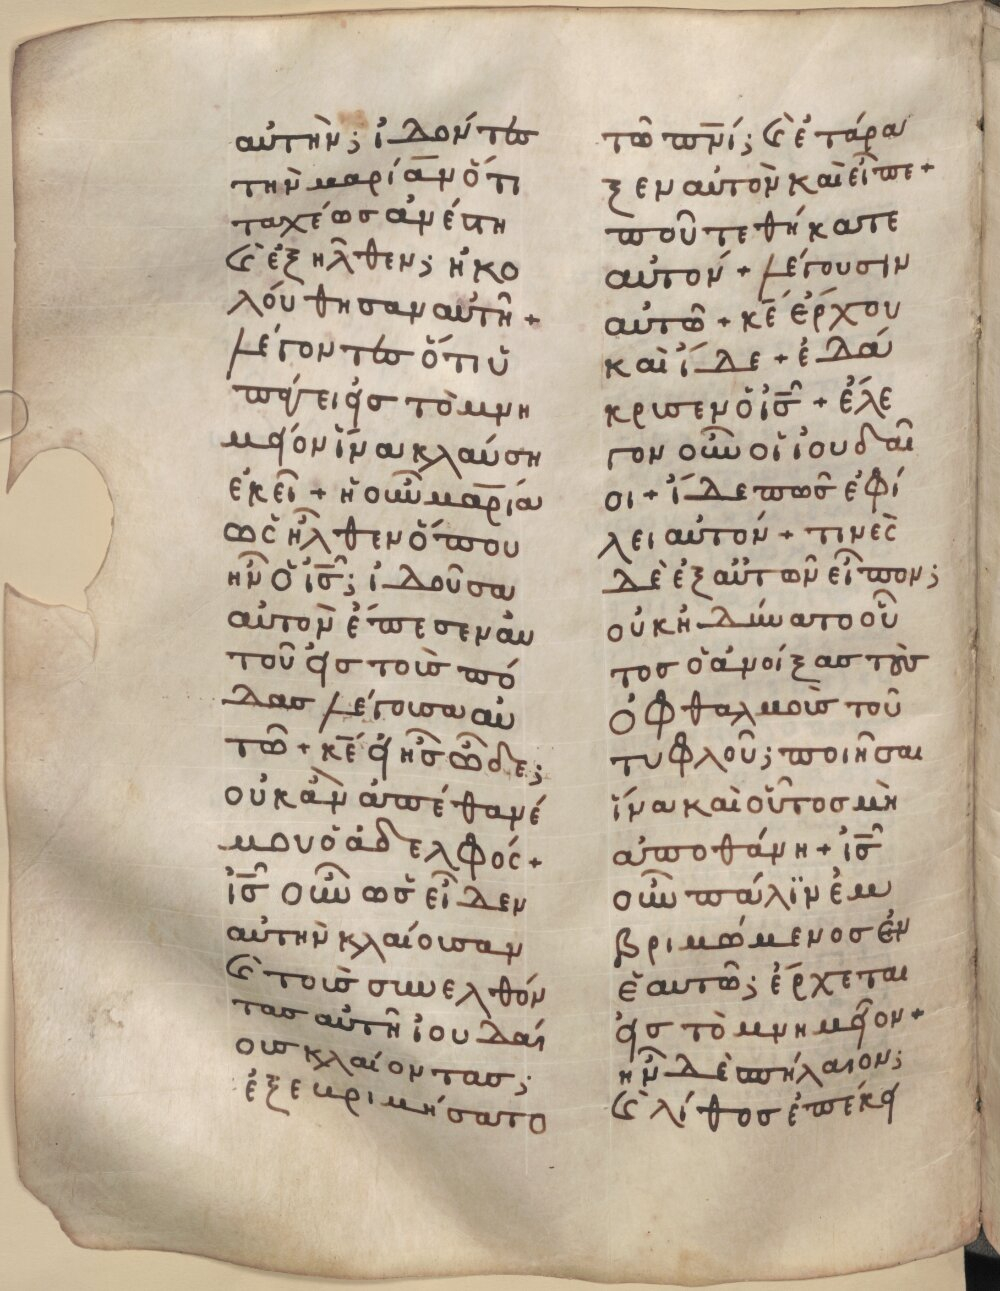 αὐτὴν; ἰδόντες
τὴν μαρίαν ὅτι
ταχέως ἀνέστη
ϗ ἐξῆλθεν; ἠκο
λούθησαν αὐτῆ +
λέγοντες ὅτι ὑ
πάγει εἰς τὸ μνη
μεῖον ἵνα κλαύση
ἐκεῖ + ἡ οὖν μαρία
ὡς ἦλθεν ὅπου
ἦν ὁ ἰς̅; ἰδοῦσα
αὐτὸν ἔπεσεν αὐ
τοῦ εἰς τοὺς πό
δας λέγουσα αὐ
τῶ + κε̅ εἰ ἦς ὧδε;
οὐκ ἂν ἀπέθανέ
μου ὁ ἀδελφός +
ἰς̅ οὖν ὡς εἶδεν
αὐτὴν κλαίουσαν
ϗ τοὺς συνελθόν
τας αὐτῆ ἰουδαί
ους κλαίοντας;
ἐξεμβριμήσατο
τῶ πνί̅; ϗ ἐτάρα
ξεν αὐτὸν καὶ εἶπε +
ποῦ τεθήκατε
αὐτόν + λέγουσιν
αὐτῶ + κε̅ ἔρχου
καὶ ἴδε + ἐδά
κρυσεν ὁ ἰς̅ + ἔλε
γον οὖν οἱ ἰουδαῖ
οι + ἴδε πῶς ἐφί
λει αὐτόν + τινὲς
δὲ ἐξ αὐτῶν εἶπον;
οὐκ ἠδύνατο οὗ
τος ὁ ἀνοίξας τοὺς
ὀφθαλμοὺς τοῦ
τυφλοῦ; ποιῆσαι
ἵνα καὶ οὗτος μὴ
ἀποθάνη + ἰς̅
οὖν πάλϊν ἐμ
βριμώμενος ἐν
ἑαυτῶ; ἔρχεται
εἰς τὸ μνημεῖον +
ἦν δὲ σπήλαιον;
ϗ λίθος ἐπέκει